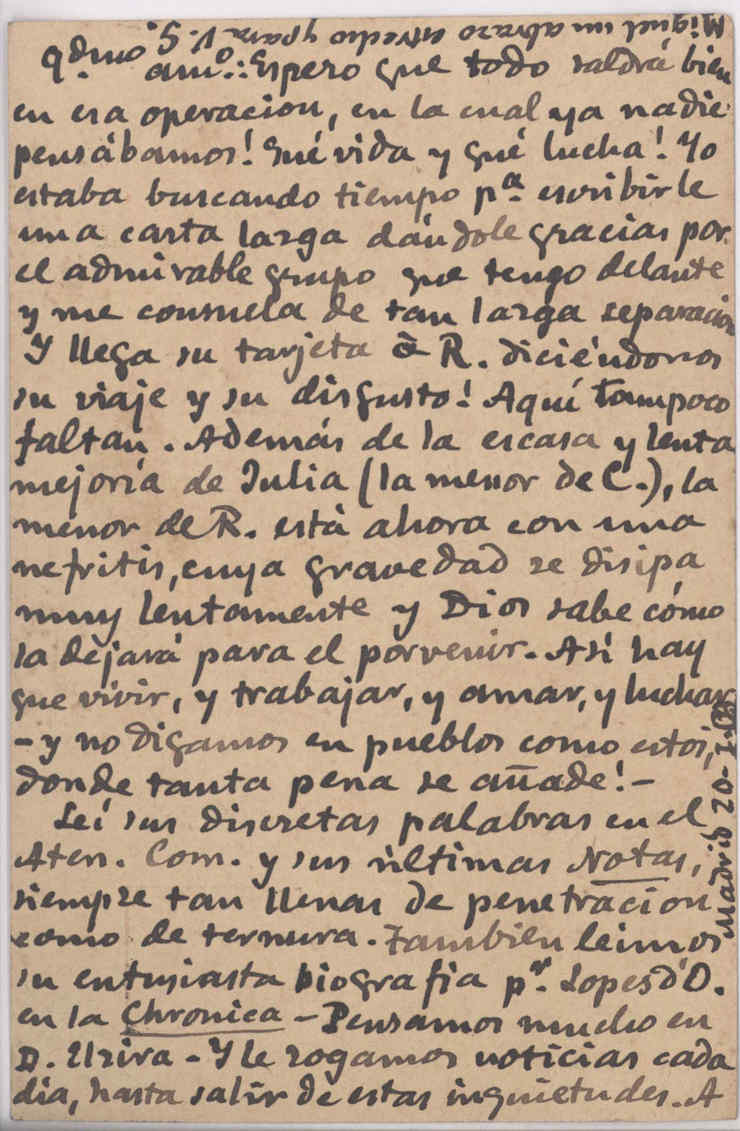 qdmo. amo.: Espero que todo saldrá bien
en esa operacion, en la cual ya nadie
pensábamos! Qué vida y qué lucha! Yo
estaba buscando tiempo pa. escribirle
una carta larga dándole gracias por
el admirable grupo que tengo delante
y me consuela de tan larga separación
Y llega su tarjeta à R. diciéndonos
su viaje y su disgusto! Aquí tampoco
faltan. Además de la escasa y lenta
mejoría de Julia (la menor de C.), la
menor de R. está ahora con una
nefritis, cuya gravedad se disipa
muy lentamente y Dios sabe cómo
la dejará para el porvenir. Así hay
que vivir, y trabajar, y amar, y luchar
- y no digamos en pueblos como estos,
donde tanta pena se añade! -
Leí sus discretas palabras en el
Aten. Com. y sus últimas Notas,
siempre tan llenas de penetracion
como de ternura. También leimos
su entusiasta biografia pr. Lopes d'O.
en la Chronica - Pensamos mucho en
D. Elzira - Y le rogamos noticias cada
dia, hasta salir de estas inquietudes. A
Miguel un abrazo estrecho y para V. G.
Madrid 20-1-